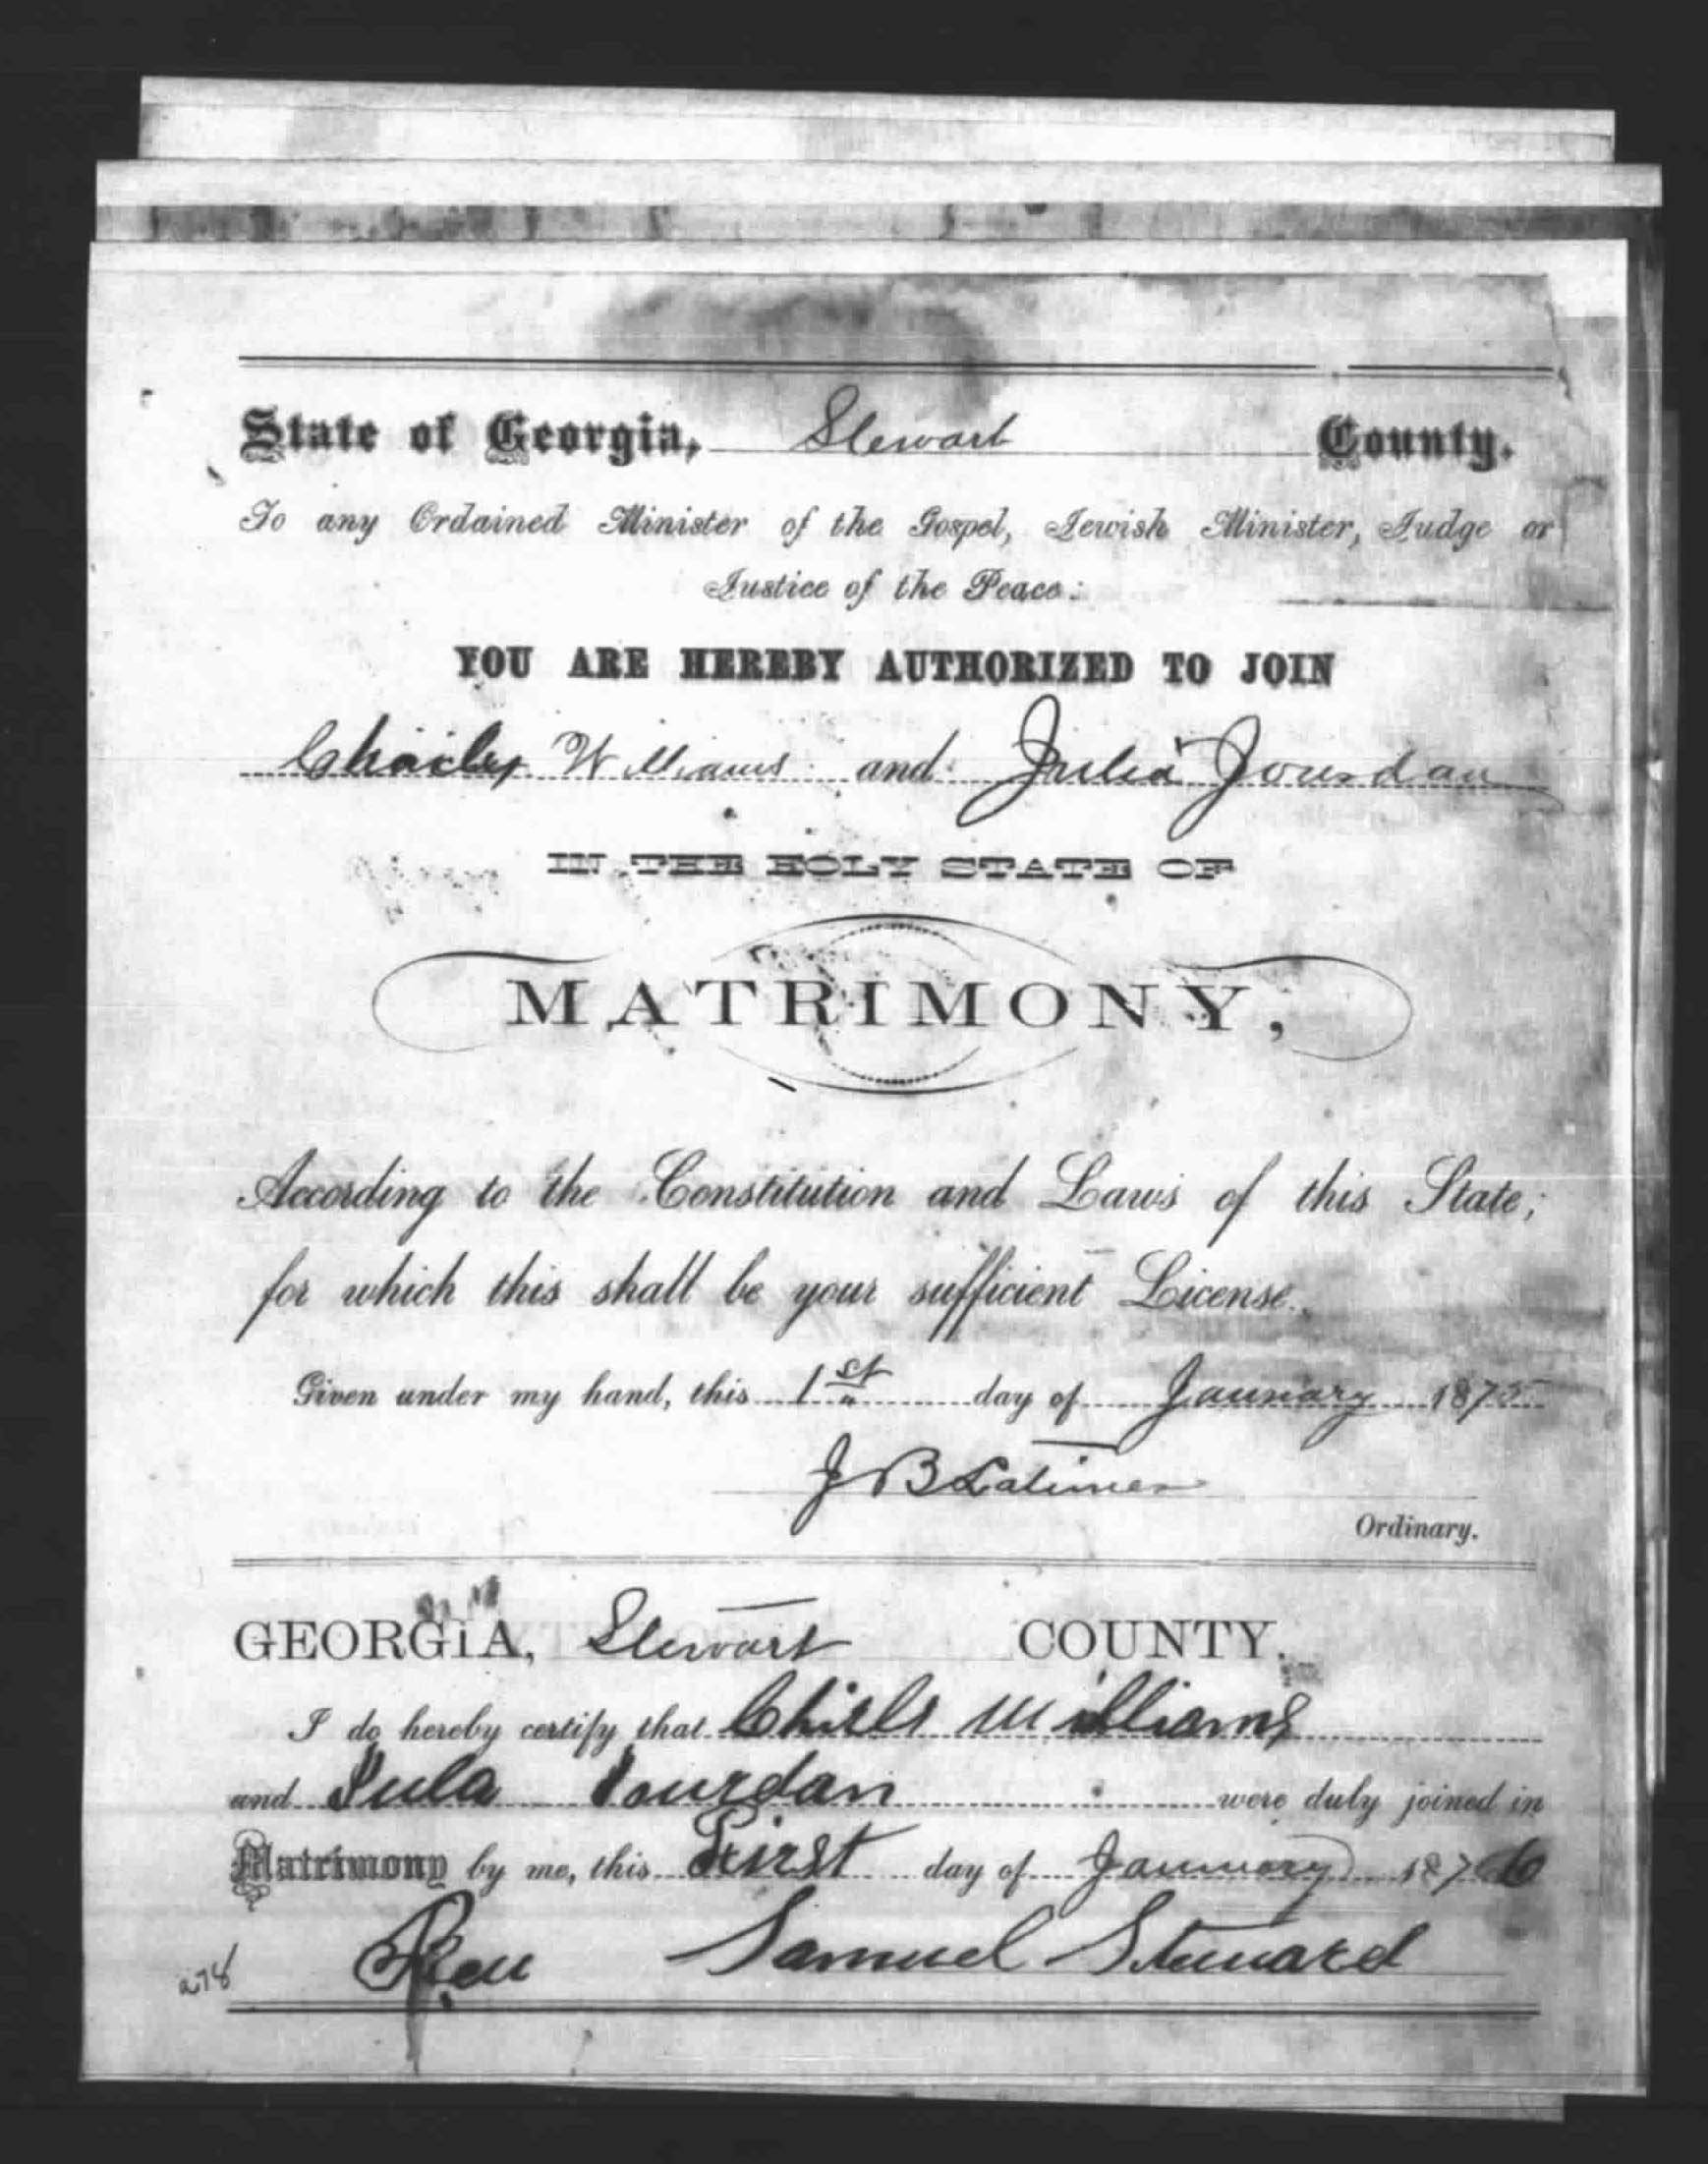 State of Georgia, Stewart County.
To any Ordained Minister of the Gospel, Jewish Minister, Judge or
Justice of the Peace:
YOU ARE HEREBY AUTHORIZED TO JOIN
Charley Williams and Julia Jourdan
IN THE HOLY STATE OF
MATRIMONY,
According to the Constitution and Laws of this State;
for which this shall be your sufficient License.
Given under my hand, this 1st day of January 1875
J B Latimer
Ordinary.
GEORGIA, Stewart COUNTY.
I do hereby certify that Williams
and Jula Jourdan were duly joined in
Matrimony by me, this First day of January 1876
Rev Samuel Steward
278